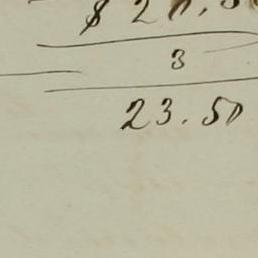 3
23.50